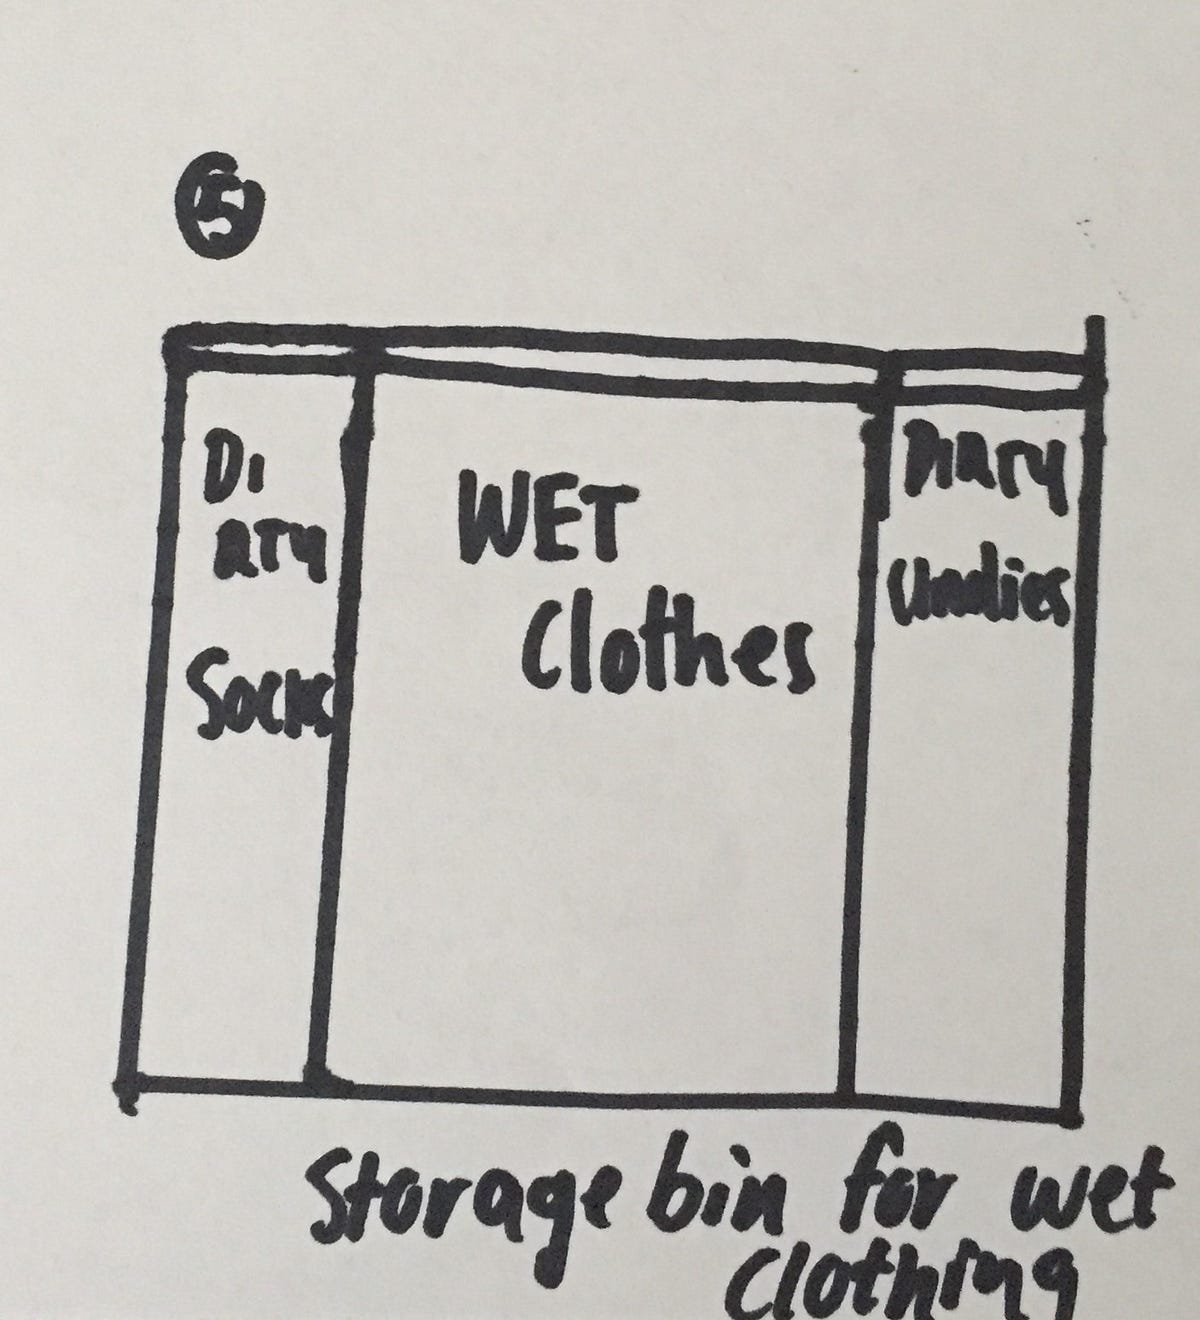 5
Di
ary
Socks
WET
Clothes
Diary
Undies
Storage bin for wet
Clothing